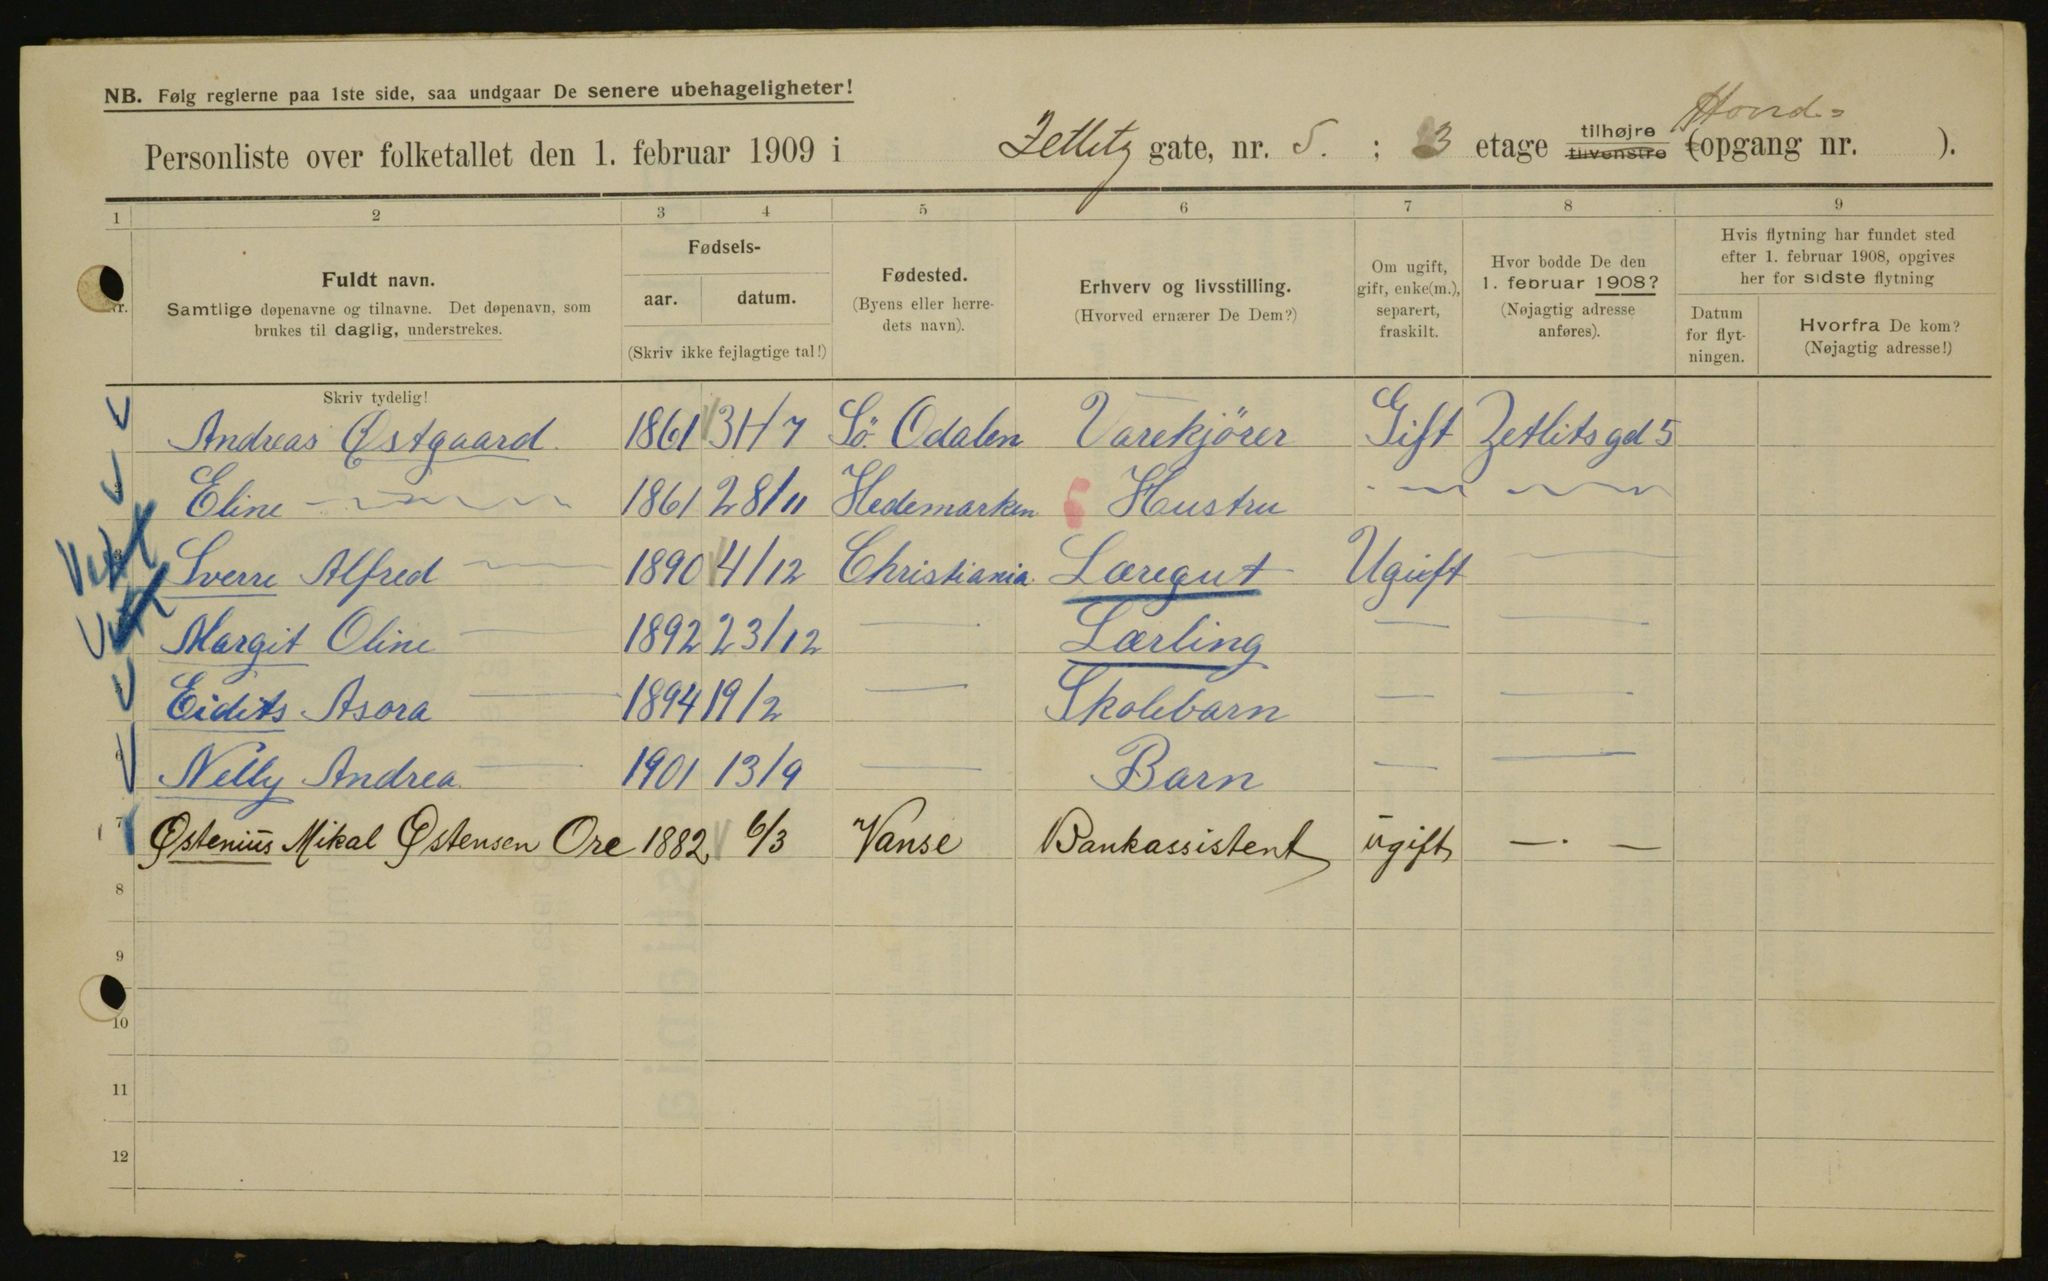 NB. Følg reglerne paa 1ste side, saa undgaar De senere ubehageligheter!
Personliste over folketallet den 1. februar 1909 i Zetlitz gate, nr. 5. ; 3 etage tilhøjre tilvenstre Hoved= (opgang nr. ).
1 2 3 4 5 6 7 8 9
Fuldt navn.
Samtlige døpenavne og tilnavne. Det døpenavn, som
brukes til daglig, understrekes.
Skriv tydelig!
Fødsels-
aar. datum.
(Skriv ikke fejlagtige tal!)
Fødested.
(Byens eller herre-
dets navn).
Erhverv og livsstilling.
(Hvorved ernærer De Dem?)
Om ugift,
gift, enke(m.),
separert,
fraskilt.
Hvor bodde De den
1. februar 1908?
(Nøjagtig adresse
anføres).
Hvis flytning har fundet sted
efter 1. februar 1908, opgives
her for sidste flytning
Datum
for flyt-
ningen.
Hvorfra De kom?
(Nøjagtig adresse!)
Andreas Østgaard. 1861 31/7 Sö. Odalen Varekjörer Gift Zetlitsgd 5
Eline 1861 28/11 Hedemarken Hustru
Sverre Alfred 1890 4/12 Christiania. Læregut Ugift
Margit Oline 1892 23/12 Lærling
Eidits Asora 1894 19/2 Skolebarn
6 Nelly Andrea 1901 13/9 Barn
7 Østenius Mikal Østensen Ore 1882 6/3 Vanse Bankassistent ugift
8
9
10
11
12